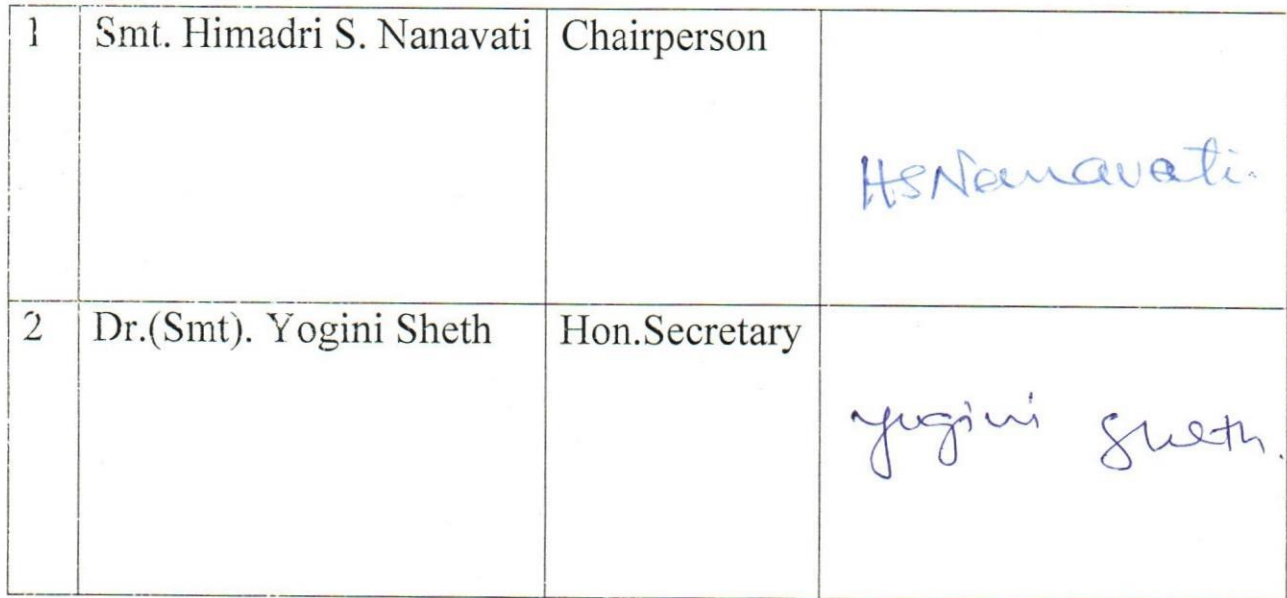 1 Smt. Himadri S. Nanavati Chairperson
HSNanavati.
2 Dr.(Smt). Yogini Sheth Hon.Secretary
Yogini Sheth.